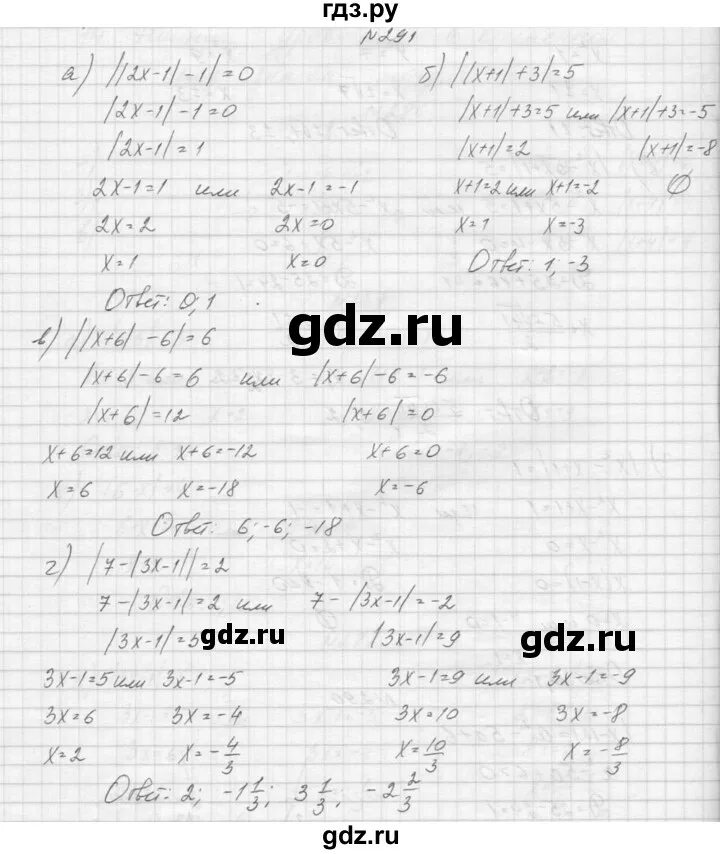 гдз.ру
№291
а) ||2x-1|-1|=0
|2x-1|-1=0
|2x-1|=1
2x-1=1 или 2x-1=-1
2x=2 2x=0
x=1 x=0
Ответ: 0; 1
б) ||x+1|+3|=5
|x+1|+3=5 или |x+1|+3=-5
|x+1|=2 |x+1|=-8
x+1=2 или x+1=-2 ∅
x=1 x=-3
Ответ: 1; -3
gdz.ru
в) ||x+6| -6|=6
|x+6|-6=6 или |x+6|-6=-6
|x+6|=12 |x+6|=0
x+6=12 или x+6=-12 x+6=0
x=6 x=-18 x=-6
Ответ: 6; -6; -18
г) |7-|3x-1||=2
7-|3x-1|=2 или 7-|3x-1|=-2
|3x-1|=5 |3x-1|=9
gdz.ru
gdz.ru
3x-1=5 или 3x-1=-5 3x-1=9 или 3x-1=-9
3x=6 3x=-4 3x=10 3x=-8
x=2 x=-4/3 x=10/3 x=-8/3
Ответ: 2; -1 1/3; 3 1/3; -2 2/3
gdz.ru